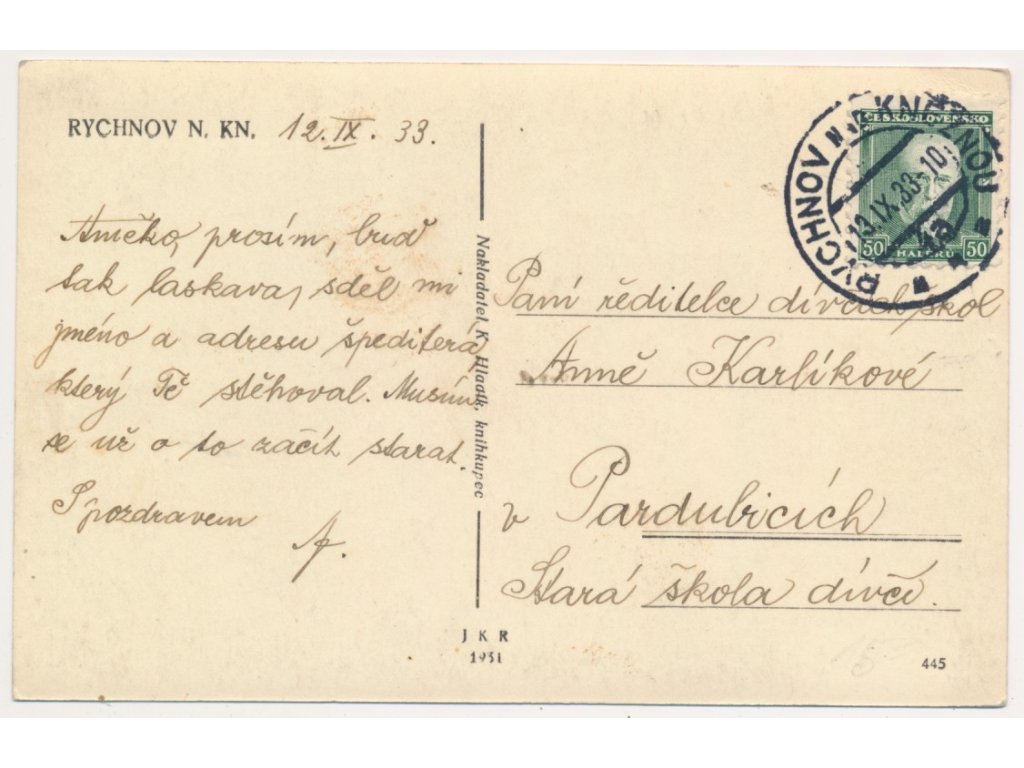 RYCHNOV N. KN. 12. IX. 33.
Aničko, prosím, buď
tak laskava, sděl mi
jméno a adresu špeditera,
který Tě stěhoval. Musím
se už o to začít starat.
S pozdravem
A.
Nakladatel K. Hladík, knihkupec
J K R
1931
RYCHNOV N. KNĚŽNOU
13.IX.33-10
1a
ČESKOSLOVENSKO
50 HALÉŘŮ 50
Paní ředitelce dívčích škol
Anně Karlíkové
v Pardubicích
Stará škola dívčí.
445